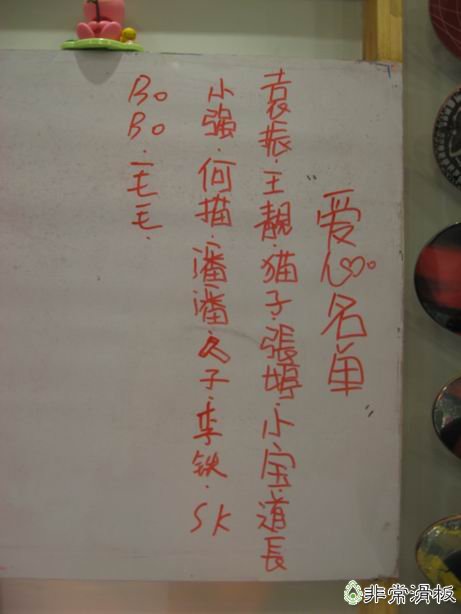 “爱心名单”
袁振·王靓·猫子·張婷·小宝·道長
小强·何描·潘潘·久子·李铁·SK
BoBo·毛毛·
非常滑板